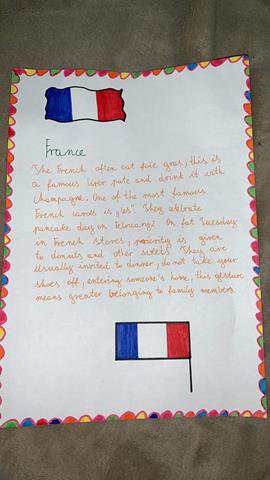 France
The French often eat foie gras, this is
a famous liver pate and drink it with
champagne. One of the most famous
French carols is „les". They celebrate
pancake day on february2. On fat Tuesday
in French stores, priority is given
to donuts and other sweets. They are
usually invited to dinner, do not take your
shoes off, entering someone's home, this gesture
means greater belonging to family members.